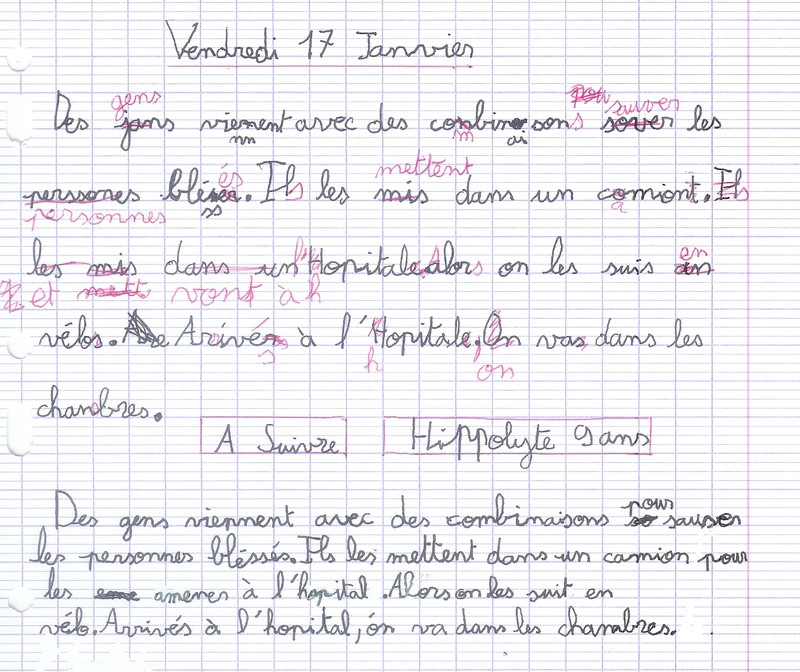 Vendredi 17 Janvier
gens pou suiver
Des jans viennent avec des conbinaisons sover les
nn m ai
és mettent
perssones blésés. Ils les mis dans un comiont. Ils
personnes ss a
l'h en
les mis dans un Hopitale. Alors on les suis an
et mett vont à h
vélos. Arivés à l'Hopitale. On vas dans les
h on
chanbres.
A Suivre Hippolyte 9 ans
pour
Des gens viennent avec des combinaisons so sauver
les personnes bléssés. Ils les mettent dans un camion pour
les amener à l'hopital. Alors on les suit en
vélo. Arrivés à l'hopital, on va dans les chambres.